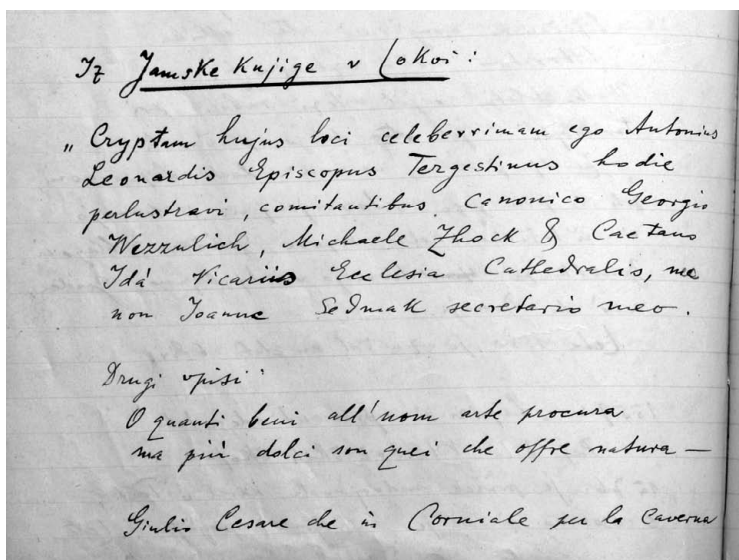 Iz Jamske Knjige v Lokvi:
„Cryptam hujus loci celeberrimam ego Antonius
Leonardis Episcopus Tergestinus hodie
perlustravi, comitantibus, Canonico Georgio
Wezzulich, Michaele Zhock & Caetano
Idá Vicariis Ecclesia Cathedralis, ne
non Joanne Sedmak secretario meo.
Drugi vpisi:
O quanti beni all'uom arte procura
ma più dolci son quei che offre natura —
Giulio Cesare che in Corniale per la Caverna